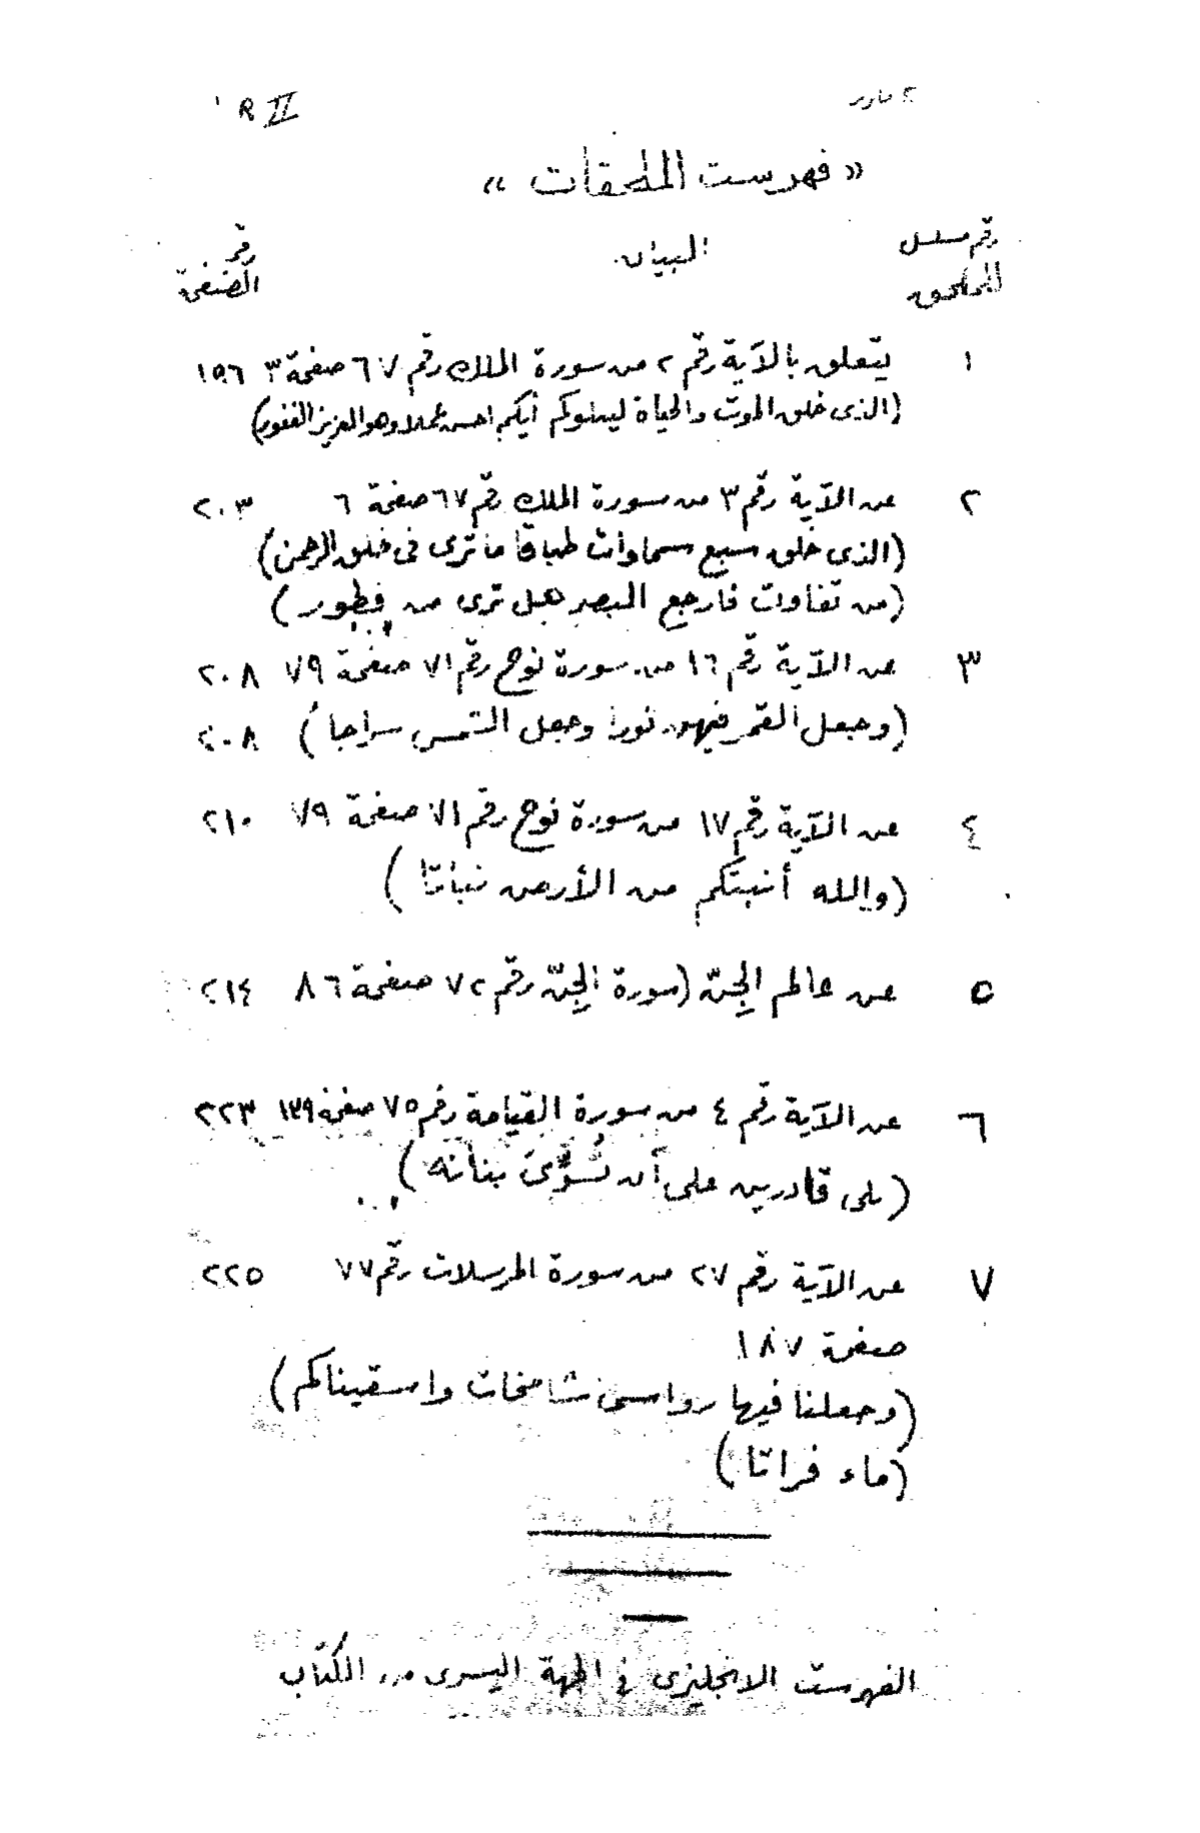 R II
« فهرست الملحقات »
رقم مسلسل البيان رقم
للملحق الصفحة
١ يتعلق بالآية رقم ٢ من سورة الملك رقم ٦٧ صفحة ٣ ١٩٦
(الذى خلق الموت والحياة ليبلوكم أيكم احسن عملا وهو العزيز الغفور)
٢ عن الآية رقم ٣ من سورة الملك رقم ٦٧ صفحة ٦ ٢٠٣
(الذى خلق سبع سماوات طباقا ما ترى فى خلق الرحمن)
(من تفاوت فارجع البصر هل ترى من فطور)
٣ عن الآية رقم ١٦ من سورة نوح رقم ٧١ صفحة ٧٩ ٢٠٨
(وجعل القمر فيهن نورا وجعل الشمس سراجا) ٢٠٨
٤ عن الآية رقم ١٧ من سورة نوح رقم ٧١ صفحة ٧٩ ٢١٠
(والله أنبتكم من الأرض نباتا)
٥ عن عالم الجنّ (سورة الجِنّ رقم ٧٢ صفحة ٨٦ ٢١٤
٦ عن الآية رقم ٤ من سورة القيامة رقم ٧٥ صفحة ١٣٩ ٢٢٣
(بلى قادرين على أن نُسَوِّىَ بنانه)
٧ عن الآية رقم ٢٧ من سورة المرسلات رقم ٧٧ ٢٢٥
صفحة ١٨٧
(وجعلنا فيها رواسى شامخات واسقيناكم)
(ماء فراتا)
الفهرست الانجليزى فى الجهة اليسرى من الكتاب